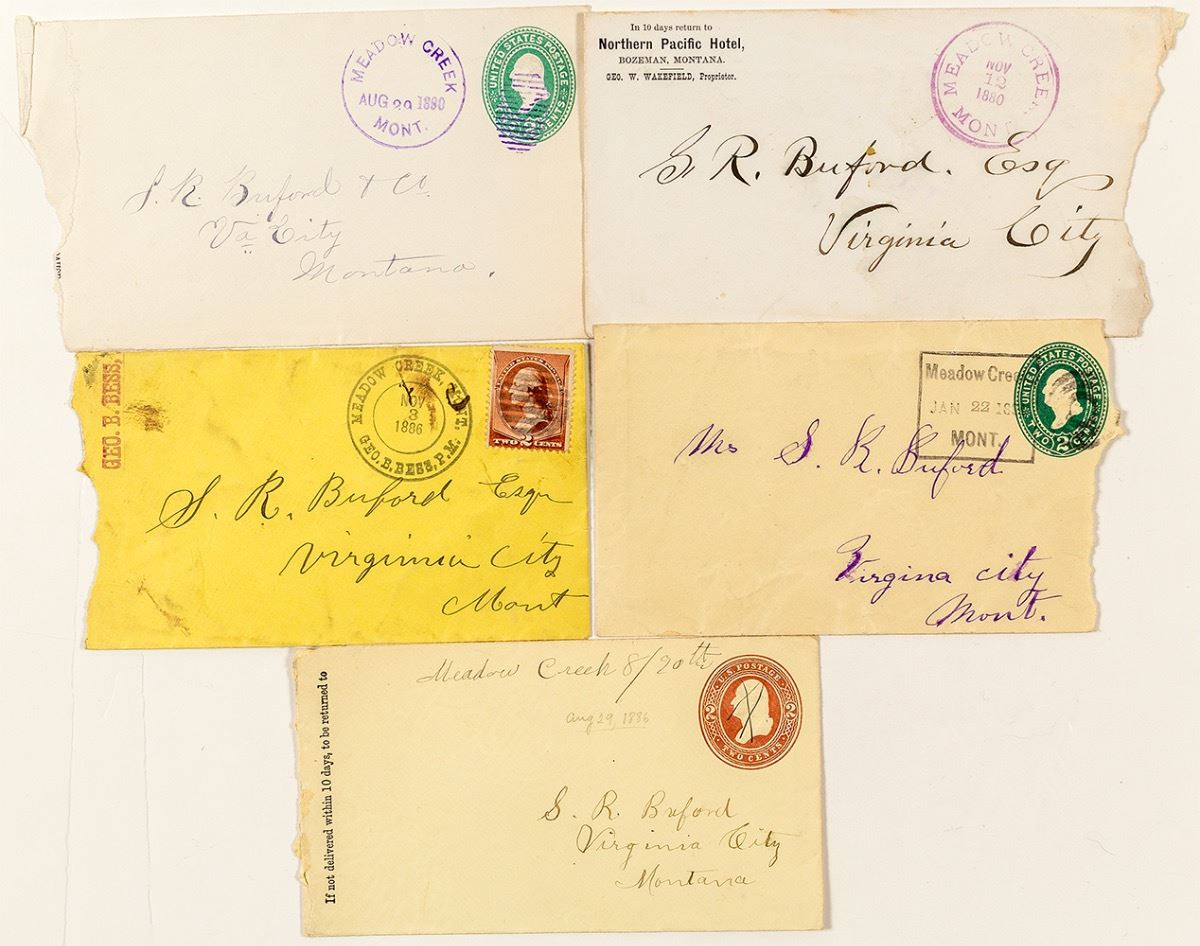 MEADOW CREEK
AUG 29 1880
MONT.
UNITED STATES POSTAGE
CENTS
S. R. Buford & Co
Va City
Montana.
In 10 days return to
Northern Pacific Hotel,
BOZEMAN, MONTANA.
GEO. W. WAKEFIELD, Proprietor.
MEADOW CREEK
NOV
12
1880
MONT
S R. Buford. Esq
Virginia City
GEO. B. BESS,
MEADOW CREEK, MONT.
NOV
3
1886
GEO. B. BESS, P.M.
TWO 2 CENTS
S. R. Buford Esqr
Virginia City
Mont
Meadow Cree
JAN 22 18
MONT.
UNITED STATES POSTAGE
TWO 2 CENTS
Mr S. R. Buford
Virgina city
Mont.
If not delivered within 10 days, to be returned to
Meadow Creek 8/20th
Aug 29, 1886
U.S. POSTAGE
2 2
TWO CENTS
S. R. Buford
Virginia City
Montana